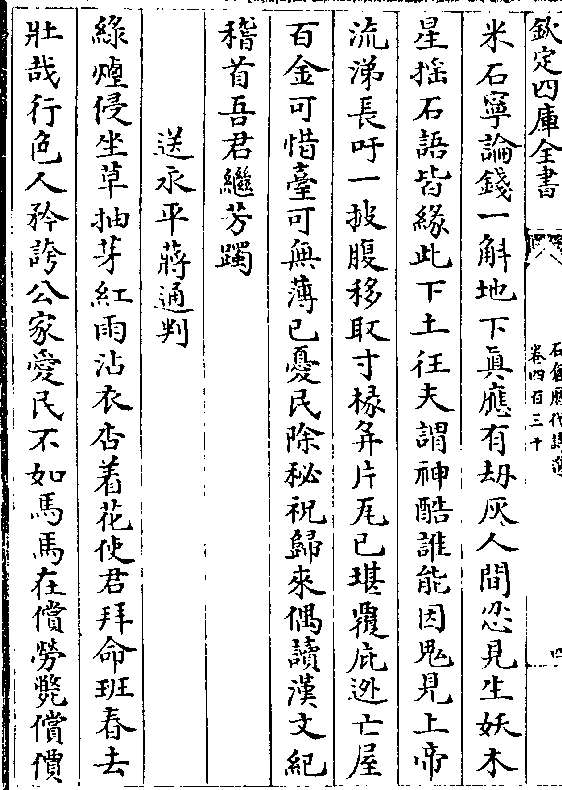 欽定四庫全書
卷四百三十
米石寧論錢一斛地下真應有刼灰人間恐見生妖木
星摇石語皆緣此下土狂夫謂神酷誰能因鬼見上帝
流涕長吁一披腹移取寸椽并片瓦已堪覆庇逃亡屋
百金可惜臺可無薄已憂民除秘祝歸來偶讀漢文紀
稽首吾君繼芳躅
送永平蔣通判
綠煙侵坐草抽芽紅雨沾衣杏着花使君拜命班春去
壯哉行色人矜誇公家愛民不如馬馬在償勞斃償價